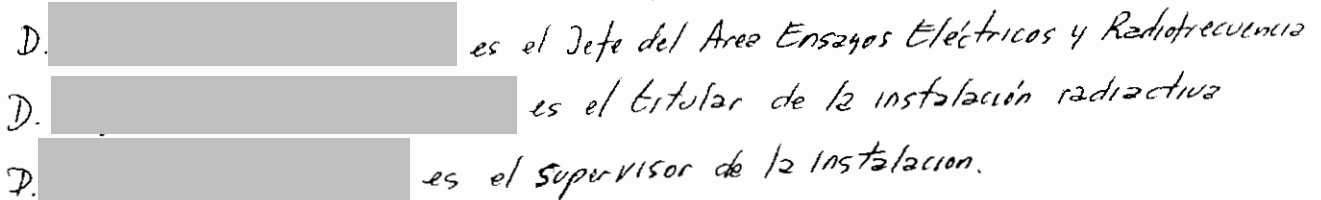 D. es el Jefe del Area Ensayos Eléctricos y Radiofrecuencia
D. es el titular de la instalación radiactiva
D. es el supervisor de la instalacion.